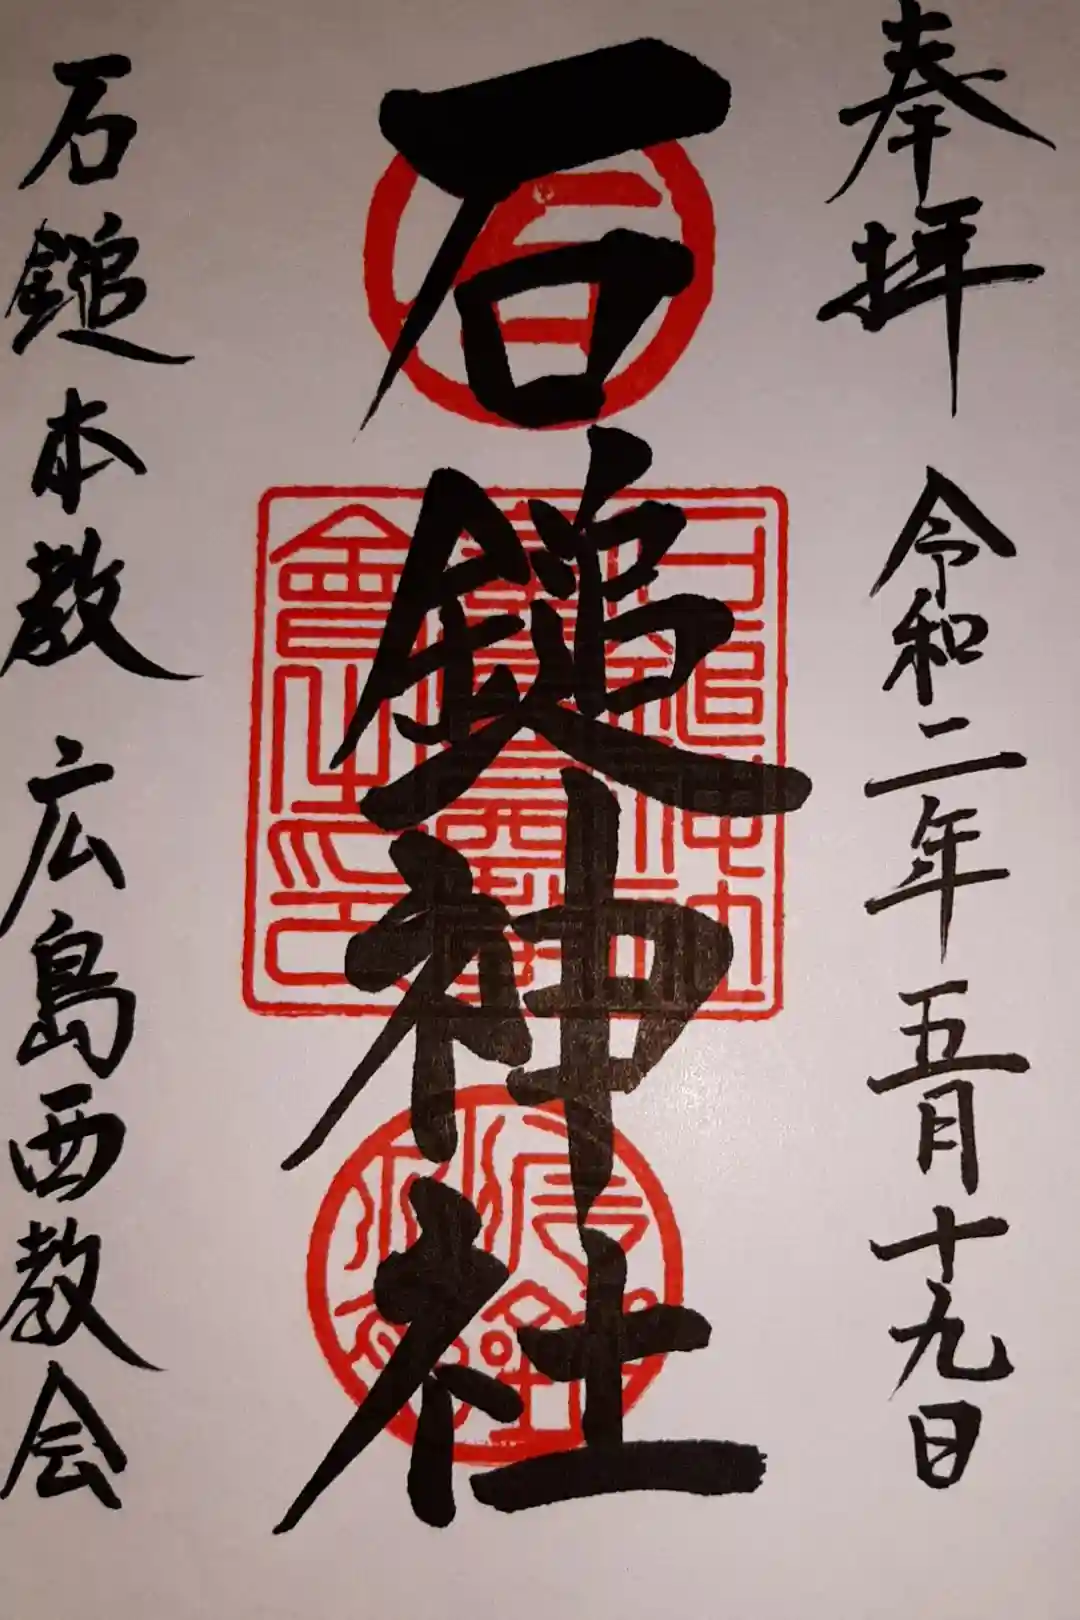 奉拝 令和二年五月十九日
石鎚神社
石鎚本教 広島西教会